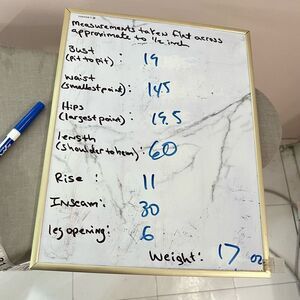 measurements taken flat across
approximate to 1/2 inch
Bust
(pit to pit): 19
Waist
(smallest point): 14.5
Hips
(largest point): 19.5
length
(shoulder to hem): 60
Rise: 11
Inseam: 30
leg opening: 6
Weight: 17 oz